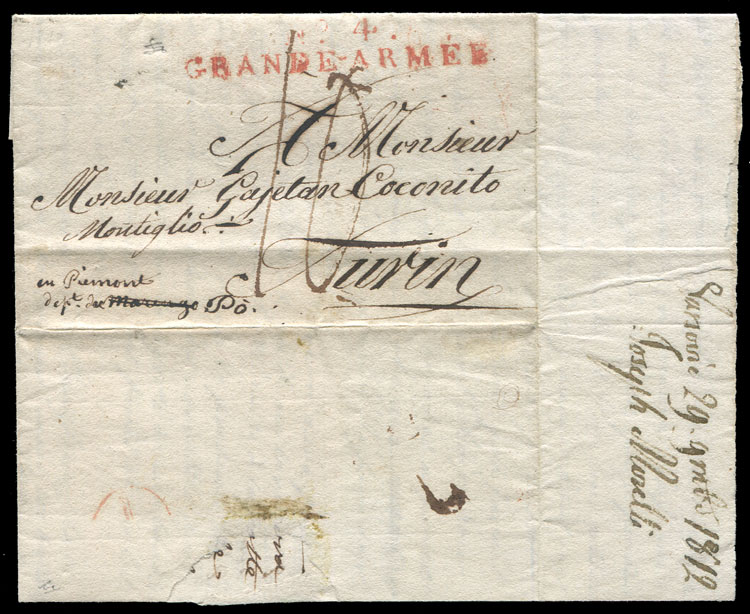 Nº 4.
GRANDE-ARMÉE
A Monsieur
Monsieur Gajetan Coconito
Montiglio
Turin
en Piemont
depᵗ. du Marengo Pô.
29. 9mbre 1812
Joseph